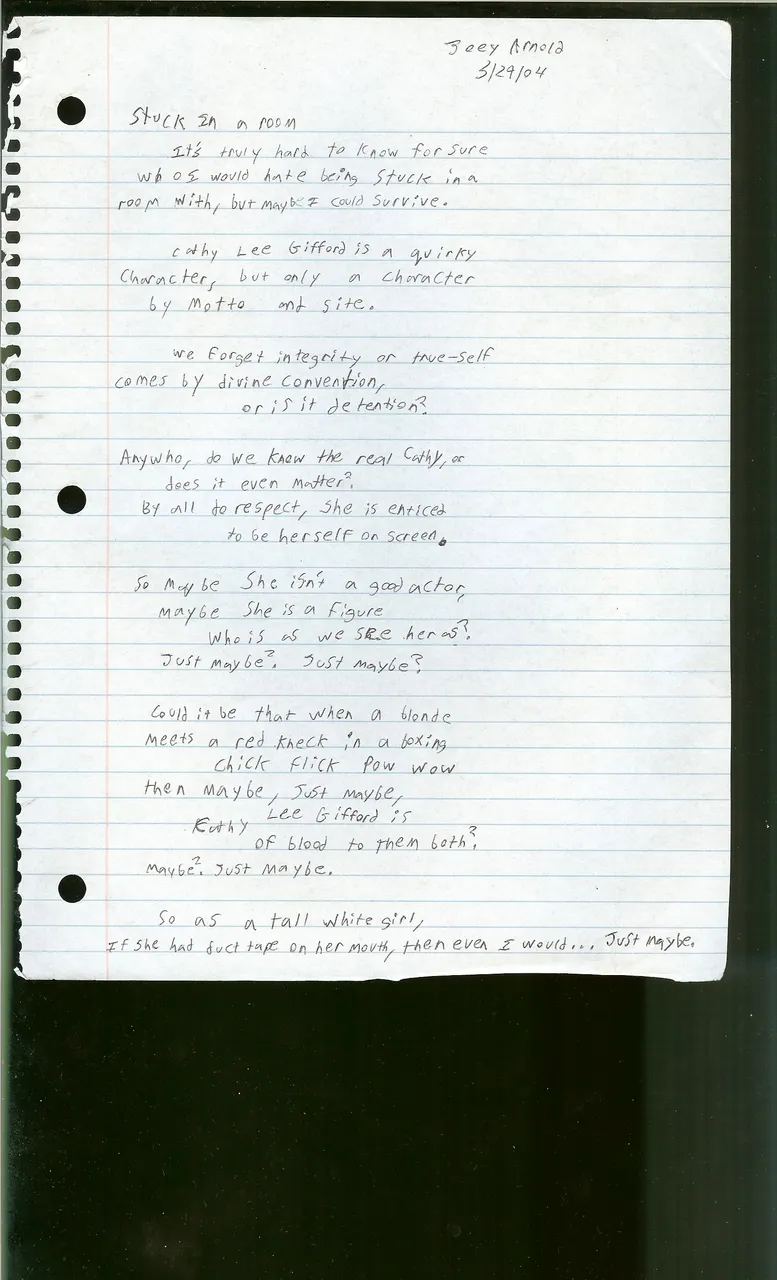 Joey Arnold
3/29/04
Stuck In a room
It's truly hard to know for sure
who I would hate being stuck in a
room with, but maybe I could survive.
Cathy Lee Gifford is a quirky
Character, but only a character
by motto and site.
we forget integrity or true-self
comes by divine convention,
or is it detention?
Anywho, do we know the real Cathy, or
does it even matter?
By all do respect, she is enticed
to be herself on screen.
So maybe She isn't a good actor,
maybe she is a figure
who is as we see her as?
Just maybe? Just maybe?
Could it be that when a blonde
meets a red kneck in a boxing
chick flick pow wow
then maybe, just maybe,
Kathy Lee Gifford is
of blood to them both?
maybe? Just maybe.
So as a tall white girl,
If she had duct tape on her mouth, then even I would... Just maybe.